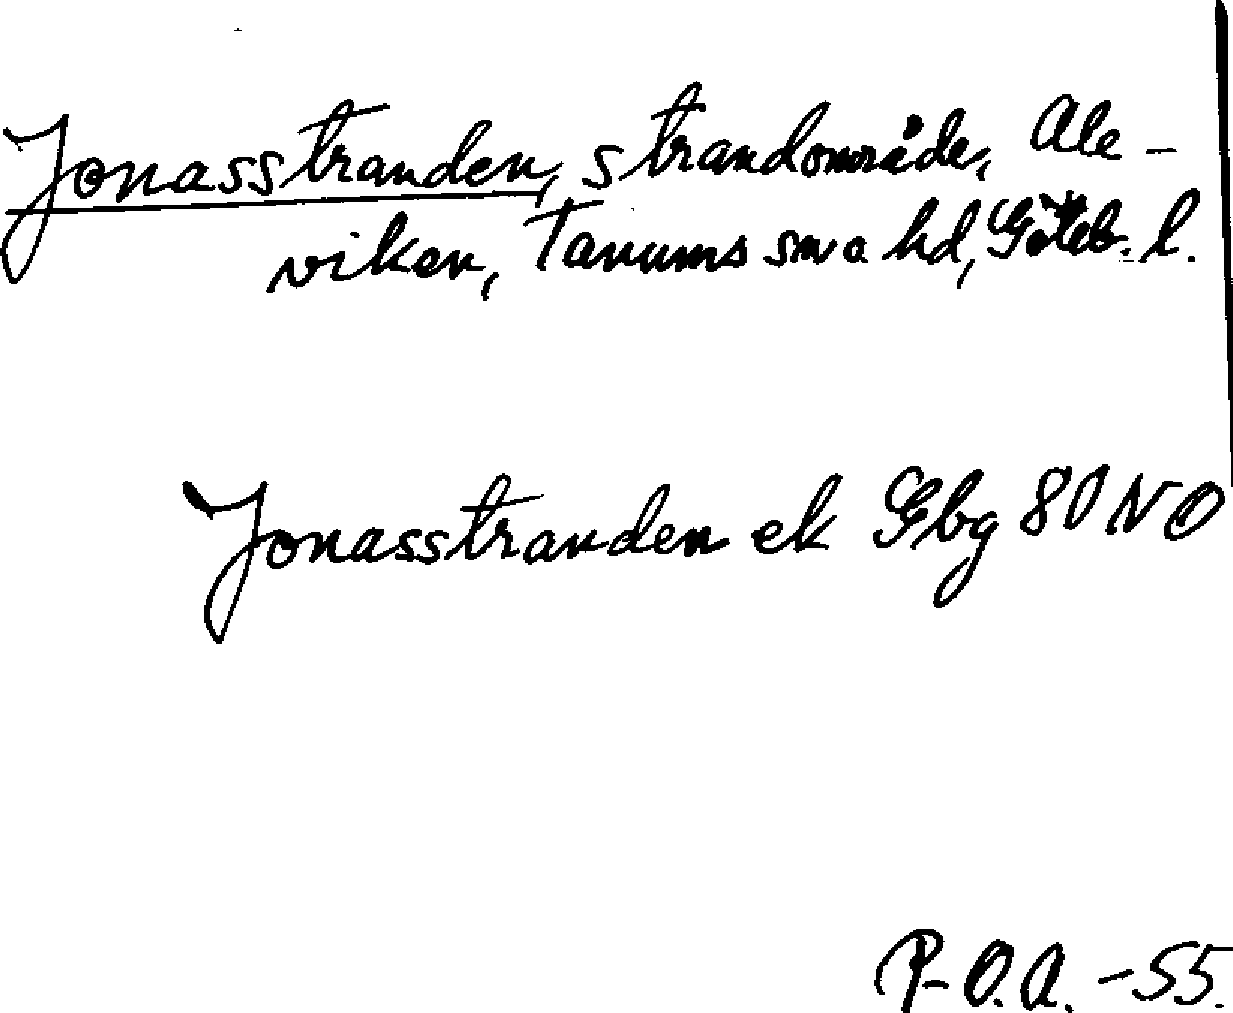 Jonasstranden, strandområde, Ale-
viken, Tanums sn o hd, Göteb. l.
Jonasstranden ek Gbg 80 NO
P-O.A. -55.